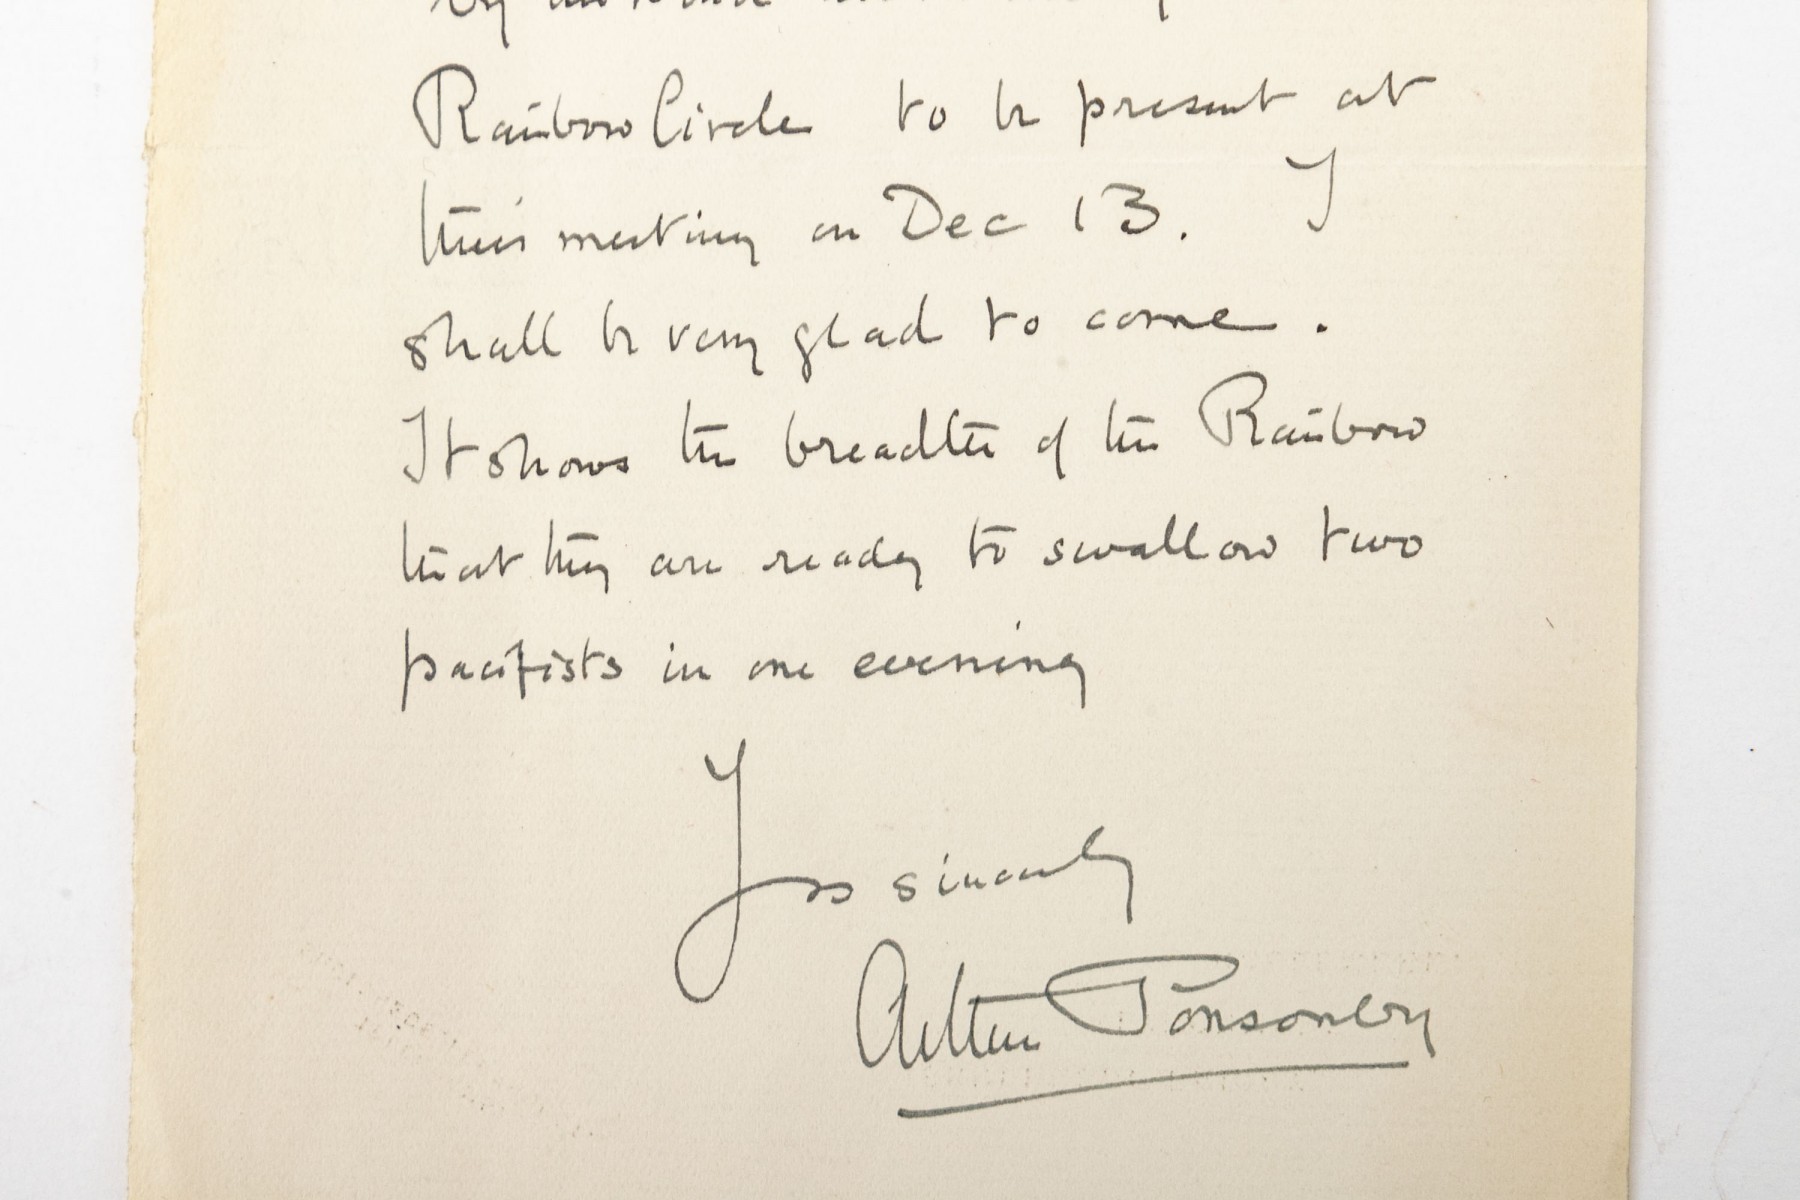 Rainbow Circle to be present at
their meeting on Dec 13. I
shall be very glad to come.
It shows the breadth of the Rainbow
that they are ready to swallow two
pacifists in one evening
Yrs sincerely
Arthur Ponsonby